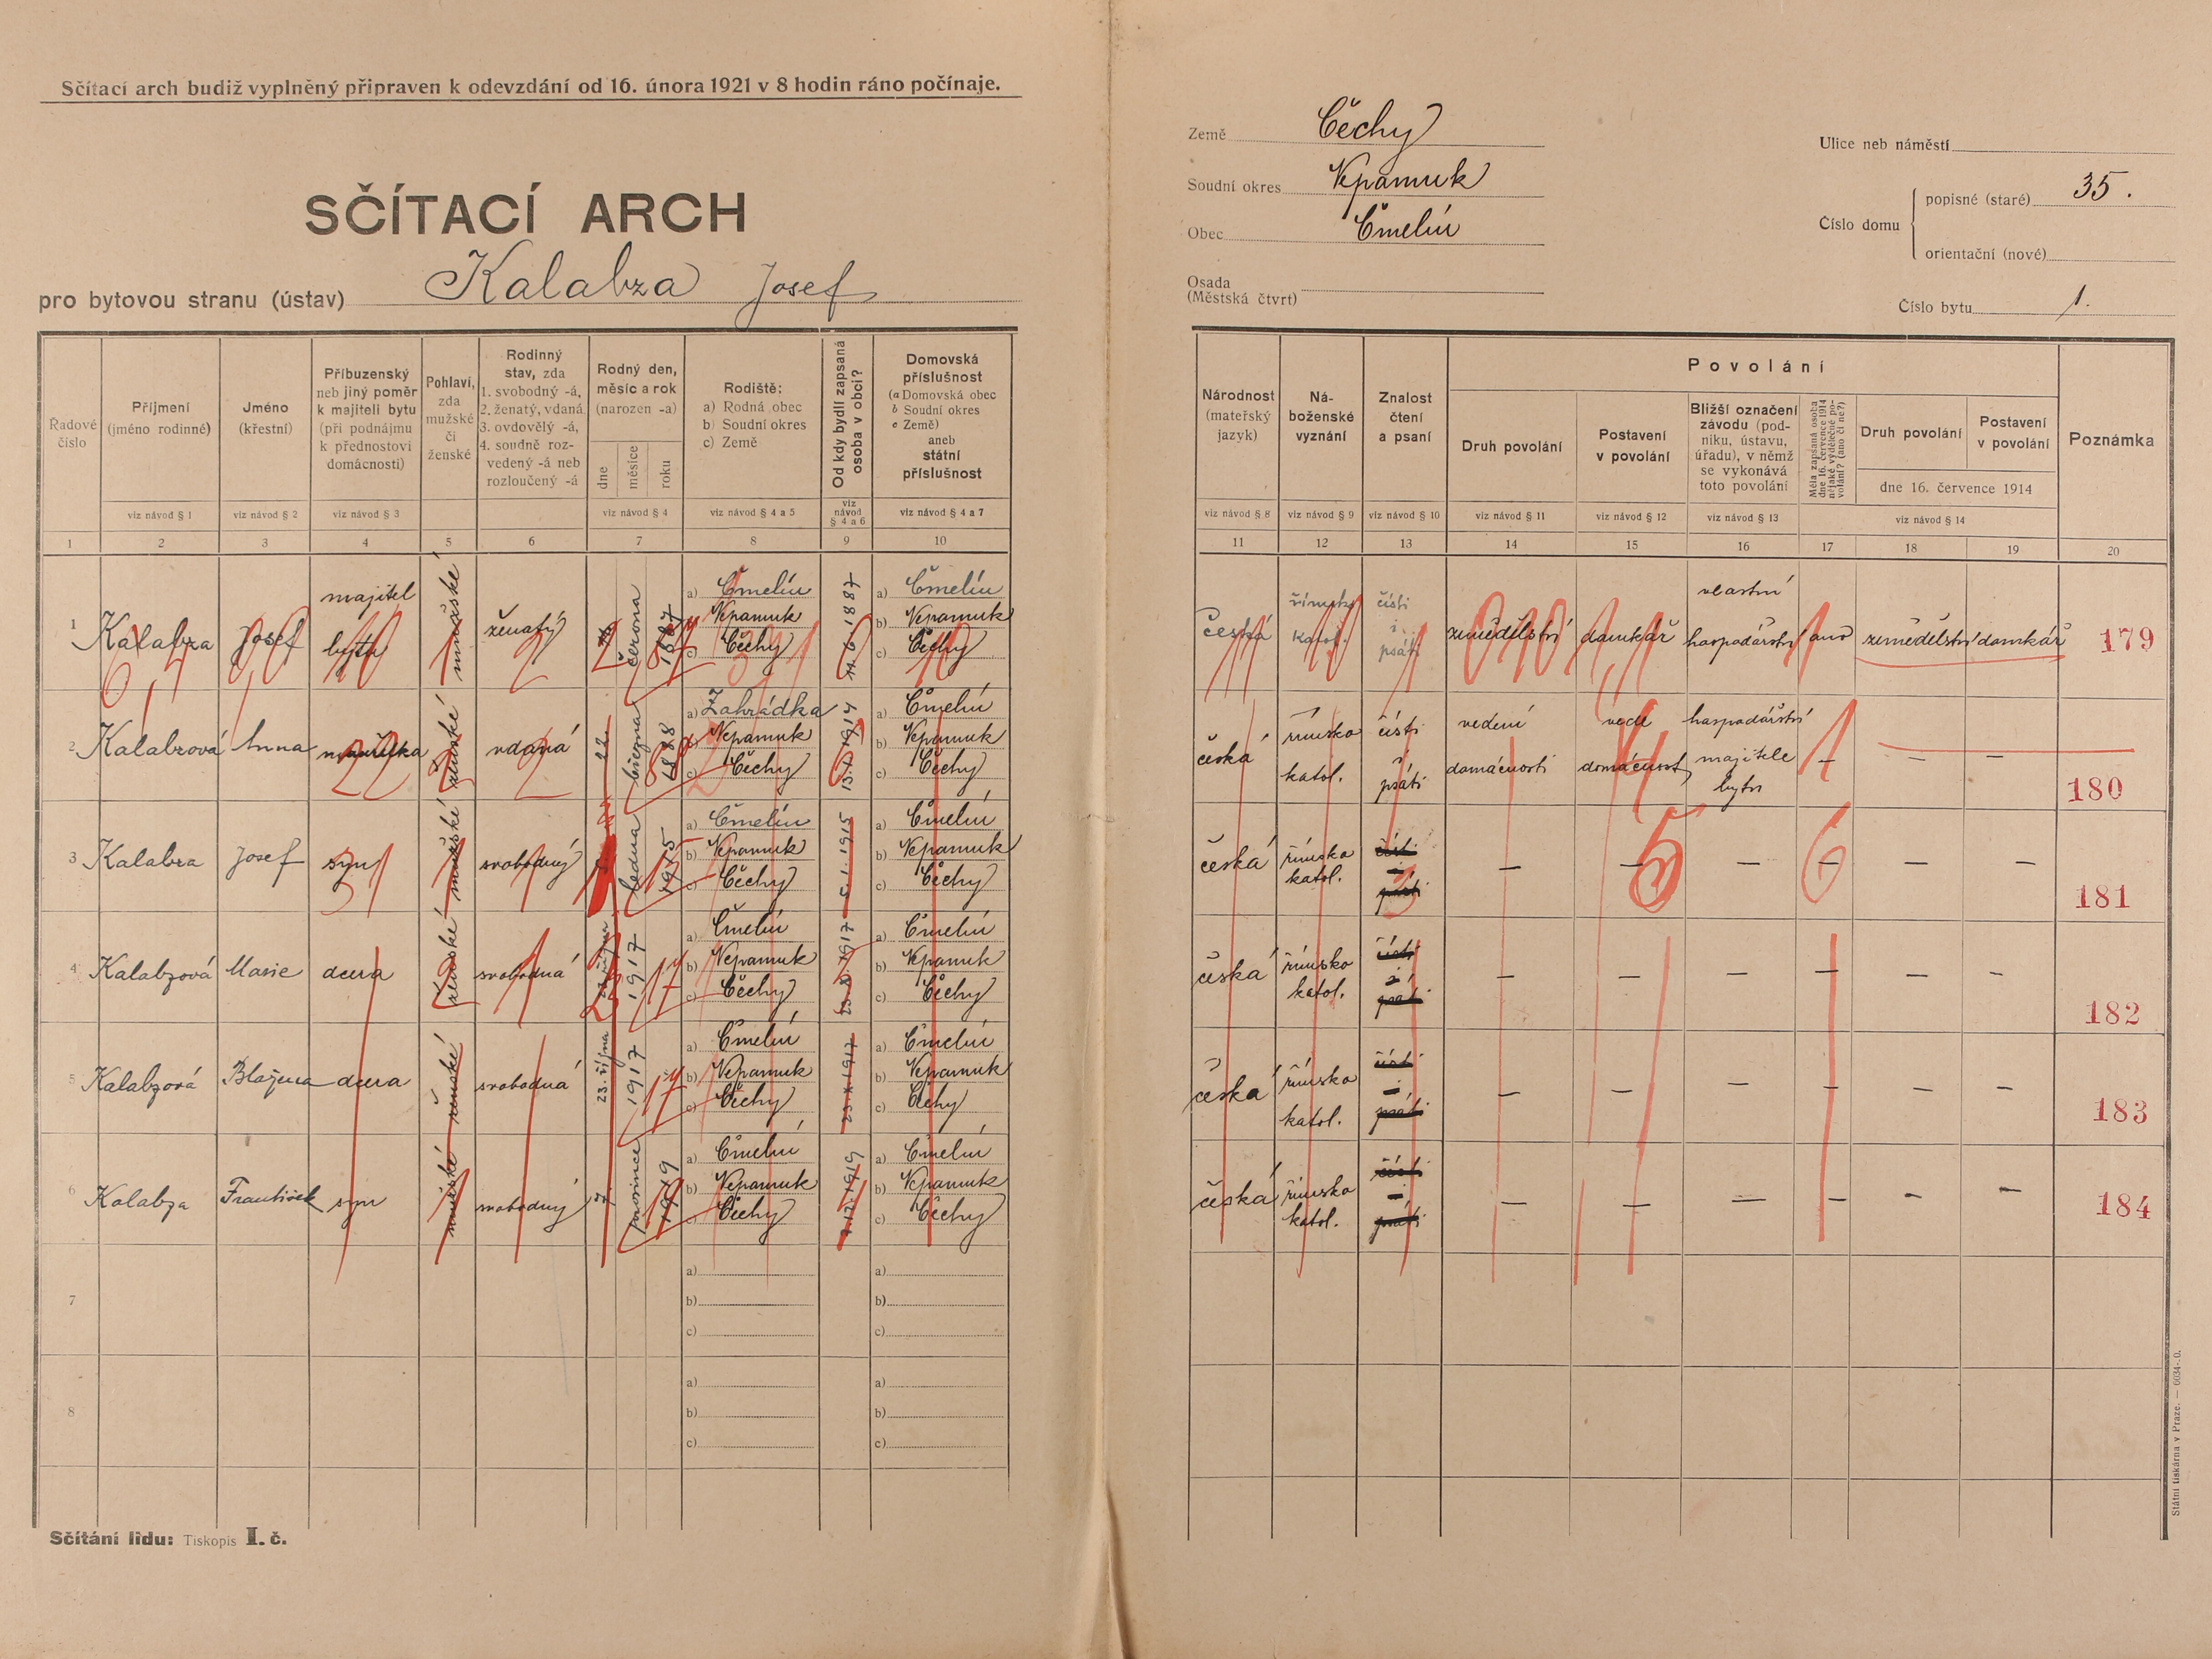 Sčítací arch budiž vyplněný připraven k odevzdání od 16. února 1921 v 8 hodin ráno počínaje.
SČÍTACÍ ARCH
pro bytovou stranu (ústav) Kalabza Josef
Země Čechy
Soudní okres Nepomuk
Obec Čmelín
Osada
(Městská čtvrt)
Ulice neb náměstí
Číslo domu
popisné (staré) 35.
orientační (nové)
Číslo bytu 1.
Řadové číslo
Příjmení (jméno rodinné)
Jméno (křestní)
Příbuzenský neb jiný poměr k majiteli bytu (při podnájmu k přednostovi domácnosti)
Pohlaví, zda mužské či ženské
Rodinný stav, zda 1. svobodný -á, 2. ženatý, vdaná 3. ovdovělý -á, 4. soudně rozvedený -á neb rozloučený -á
Rodný den, měsíc a rok (narozen -a)
dne měsíce roku
Rodiště:
a) Rodná obec
b) Soudní okres
c) Země
Od kdy bydlí zapsaná osoba v obci?
Domovská příslušnost
(a Domovská obec
b Soudní okres
c Země)
aneb státní příslušnost
viz návod § 1 viz návod § 2 viz návod § 3 viz návod § 4 viz návod § 4 a 5 viz návod § 4 a 6 viz návod § 4 a 7
1 2 3 4 5 6 7 8 9 10
Národnost (mateřský jazyk)
Náboženské vyznání
Znalost čtení a psaní
Povolání
Druh povolání
Postavení v povolání
Bližší označení závodu (podniku, ústavu, úřadu), v němž se vykonává toto povolání
Měla zapsaná osoba dne 16. července 1914 nějaké výdělečné povolání? (ano či ne?)
Druh povolání
Postavení v povolání
dne 16. července 1914
Poznámka
viz návod § 8 viz návod § 9 viz návod § 10 viz návod § 11 viz návod § 12 viz návod § 13 viz návod § 14
11 12 13 14 15 16 17 18 19 20
1 Kalabza Josef majitel bytu mužské ženatý června 1887 a) Čmelín b) Nepomuk c) Čechy 6 1887 a) Čmelín b) Nepomuk c) Čechy
česká římsko katol. čísti i psáti zemědělství domkář vlastní hospodářství ano zemědělství domkář 179
2 Kalabzová Anna manželka ženské vdaná 22. března 1888 a) Zahrádka b) Nepomuk c) Čechy 1914 a) Čmelín b) Nepomuk c) Čechy
česká římsko katol. čísti i psáti vedení domácnosti vede domácnost hospodářství majitele bytu — — — 180
3 Kalabza Josef syn mužské svobodný 5. ledna 1915 a) Čmelín b) Nepomuk c) Čechy 5. 1. 1915 a) Čmelín b) Nepomuk c) Čechy
česká římsko katol. čísti i psáti — — — — — — 181
4 Kalabzová Marie dcera ženské svobodná 23. října 1917 a) Čmelín b) Nepomuk c) Čechy 1917 a) Čmelín b) Nepomuk c) Čechy
česká římsko katol. čísti i psáti — — — — — 182
5 Kalabzová Blažena dcera ženské svobodná 23. října 1917 a) Čmelín b) Nepomuk c) Čechy 23. X. 1917 a) Čmelín b) Nepomuk c) Čechy
česká římsko katol. čísti i psáti — — — — — — 183
6 Kalabza František syn mužské svobodný 7. prosince 1919 a) Čmelín b) Nepomuk c) Čechy 7. 12. 1919 a) Čmelín b) Nepomuk c) Čechy
česká římsko katol. čísti i psáti — — — — — — 184
7 a) b) c) a) b) c)
8 a) b) c) a) b) c)
Sčítání lidu: Tiskopis I. č.
Státní tiskárna v Praze. — 6034-.0.